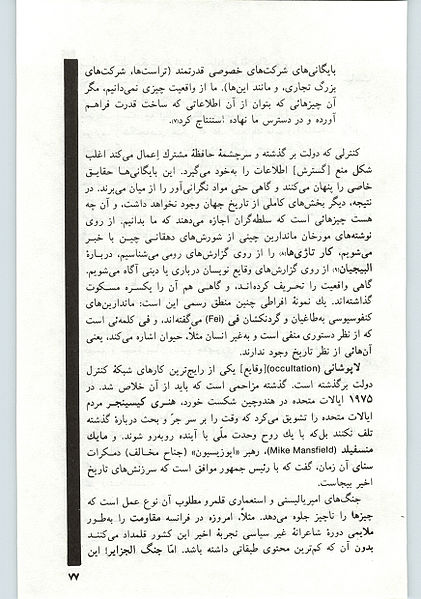 بایگانی‌های شرکت‌های خصوصی قدرتمند (تراست‌ها، شرکت‌های
بزرگ تجاری، و مانند این‌ها). ما از واقعیت چیزی نمی‌دانیم، مگر
آن چیزهائی که بتوان از آن اطلاعاتی که ساخت قدرت فراهم
آورده و در دسترس ما نهاده استنتاج کرد(۷).
کنترلی که دولت بر گذشته و سرچشمهٔ حافظهٔ مشترك إعمال می‌کند اغلب
شکل منع [گسترش] اطلاعات را به‌خود می‌گیرد. این بایگانی‌ها حقایق
خاصی را پنهان می‌کنند و گاهی حتی مواد نگرانی‌آور را از میان می‌برند. در
نتیجه، دیگر بخش‌های کاملی از تاریخ جهان وجود نخواهد داشت، و آن چه
هست چیزهائی است که سلطه‌گران اجازه می‌دهند که ما بدانیم. از روی
نوشته‌های مورخان ماندارین چینی از شورش‌های دهقانی چین با خبر
می‌شویم، کار تاژی‌ها(۸) را از روی گزارش‌های رومی می‌شناسیم، دربارهٔ
البیجیان(۹) از روی گزارش‌های وقایع نویسان درباری یا دینی آگاه می‌شویم.
گاهی واقعیت را تحریف کرده‌اند، و گاهی هم آن را یکسره مسکوت
گذاشته‌اند. یك نمونهٔ افراطی چنین منطق رسمی این است: ماندارین‌های
کنفوسیوسی به‌طاغیان و گردنکشان فی (Fei) می‌گفته‌اند، و فی کلمه‌ئی است
که از نظر دستوری منفی است و به‌غیر انسان مثلاً، حیوان اشاره می‌کند، یعنی
آن‌هائی از نظر تاریخ وجود ندارند.
لاپوشانی (occultation)[وقایع] یکی از رایج‌ترین کارهای شبکهٔ کنترل
دولت برگذشته است. گذشته مزاحمی است که باید از آن خلاص شد. در
۱۹۷۵ ایالات متحده در هندوچین شکست خورد، هنری کیسینجر مردم
ایالات متحده را تشویق می‌کرد که وقت را بر سر جرّ و بحث دربارهٔ گذشته
تلف نکنند بل‌که با یك روح وحدت ملّی با آینده روبه‌رو شوند. و مایك
منسفیلد (Mike Mansfield)، رهبر «اپوزیسیون» (جناح مخالف) دمکرات
سنای آن زمان، گفت که با رئیس جمهور موافق است که سرزنش‌های تاریخ
اخیر بیجاست.
جنگ‌های امپریالیستی و استعماری قلمرو مطلوب آن نوع عمل است که
چیزها را ناچیز جلوه می‌دهد. مثلاً، امروزه در فرانسه مقاومت را به‌طور
ملایمی دورهٔ شاعرانهٔ غیر سیاسی تجربهٔ اخیر این کشور قلمداد می‌کنند
بدون آن که کم‌ترین محتوی طبقاتی داشته باشد. امّا جنگ الجزایر! این
۷۷